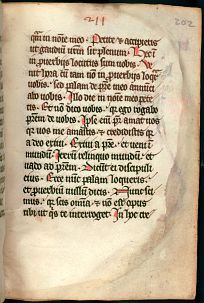 211 202
q̄m in nōīe meo. Petite et accipietis
ut gaudiū vr̄m sit plenum. Hec
in ꝓuerbijs locutus sum vobis. Ve
nit hora cū iam nō in ꝓuerbijs loq̄r
vobis. sed palam de pr̄e meo annūci
abo vobis. Illo die in nōīe meo pete
tis. Et nō dico vobis. q̄ ego rogabo
pr̄em de vobis. Ipse eni pr̄ amat vos
q̄ vos me amastis. et credidistis q̄
a deo exiui. Exiui a pr̄e. et veni ī
mundū. Iterū relinquo mundū. et
vado ad pr̄em. Dicūt ei discipuli
eius. Ecce nūc palam loqueris.
et ꝓuerbiū nullū dicis. Nunc sci
mus. q̄ scis omīa. et nō est opus
tibi ut q̄s te interroget. In hoc cre